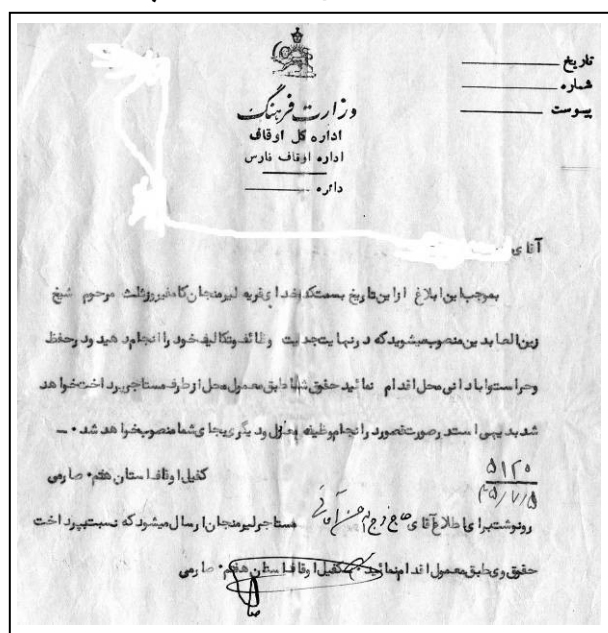 تاریخ
شماره
پیوست
وزارت فرهنگ
اداره کل اوقاف
اداره اوقاف فارس
دائره
آقای
بموجب این ابلاغ از این تاریخ بسمت کدخدای قریه لیرمنجان کامفیروز ثلث مرحوم شیخ
زین العابدین منصوب میشوید که در نهایت جدیت وظائف و تکالیف خود را انجام دهید و در حفظ
و حراست و آبادانی محل اقدام نمائید حقوق شما طبق معمول محل از طرف مستاجر پرداخت خواهد
شد بدیهی است در صورت قصور در انجام وظیفه معزول و دیگری بجای شما منصوب خواهد شد ۰ ـ
کفیل اوقاف استان هفتم ۰ صارمی
۵۱۲۰
۴۵/۷/۵
رونوشت برای اطلاع آقای حاج مستاجر لیرمنجان ارسال میشود که نسبت بپرداخت
حقوق وی طبق معمول اقدام نمائید ۰ کفیل اوقاف استان هفتم ۰ صارمی